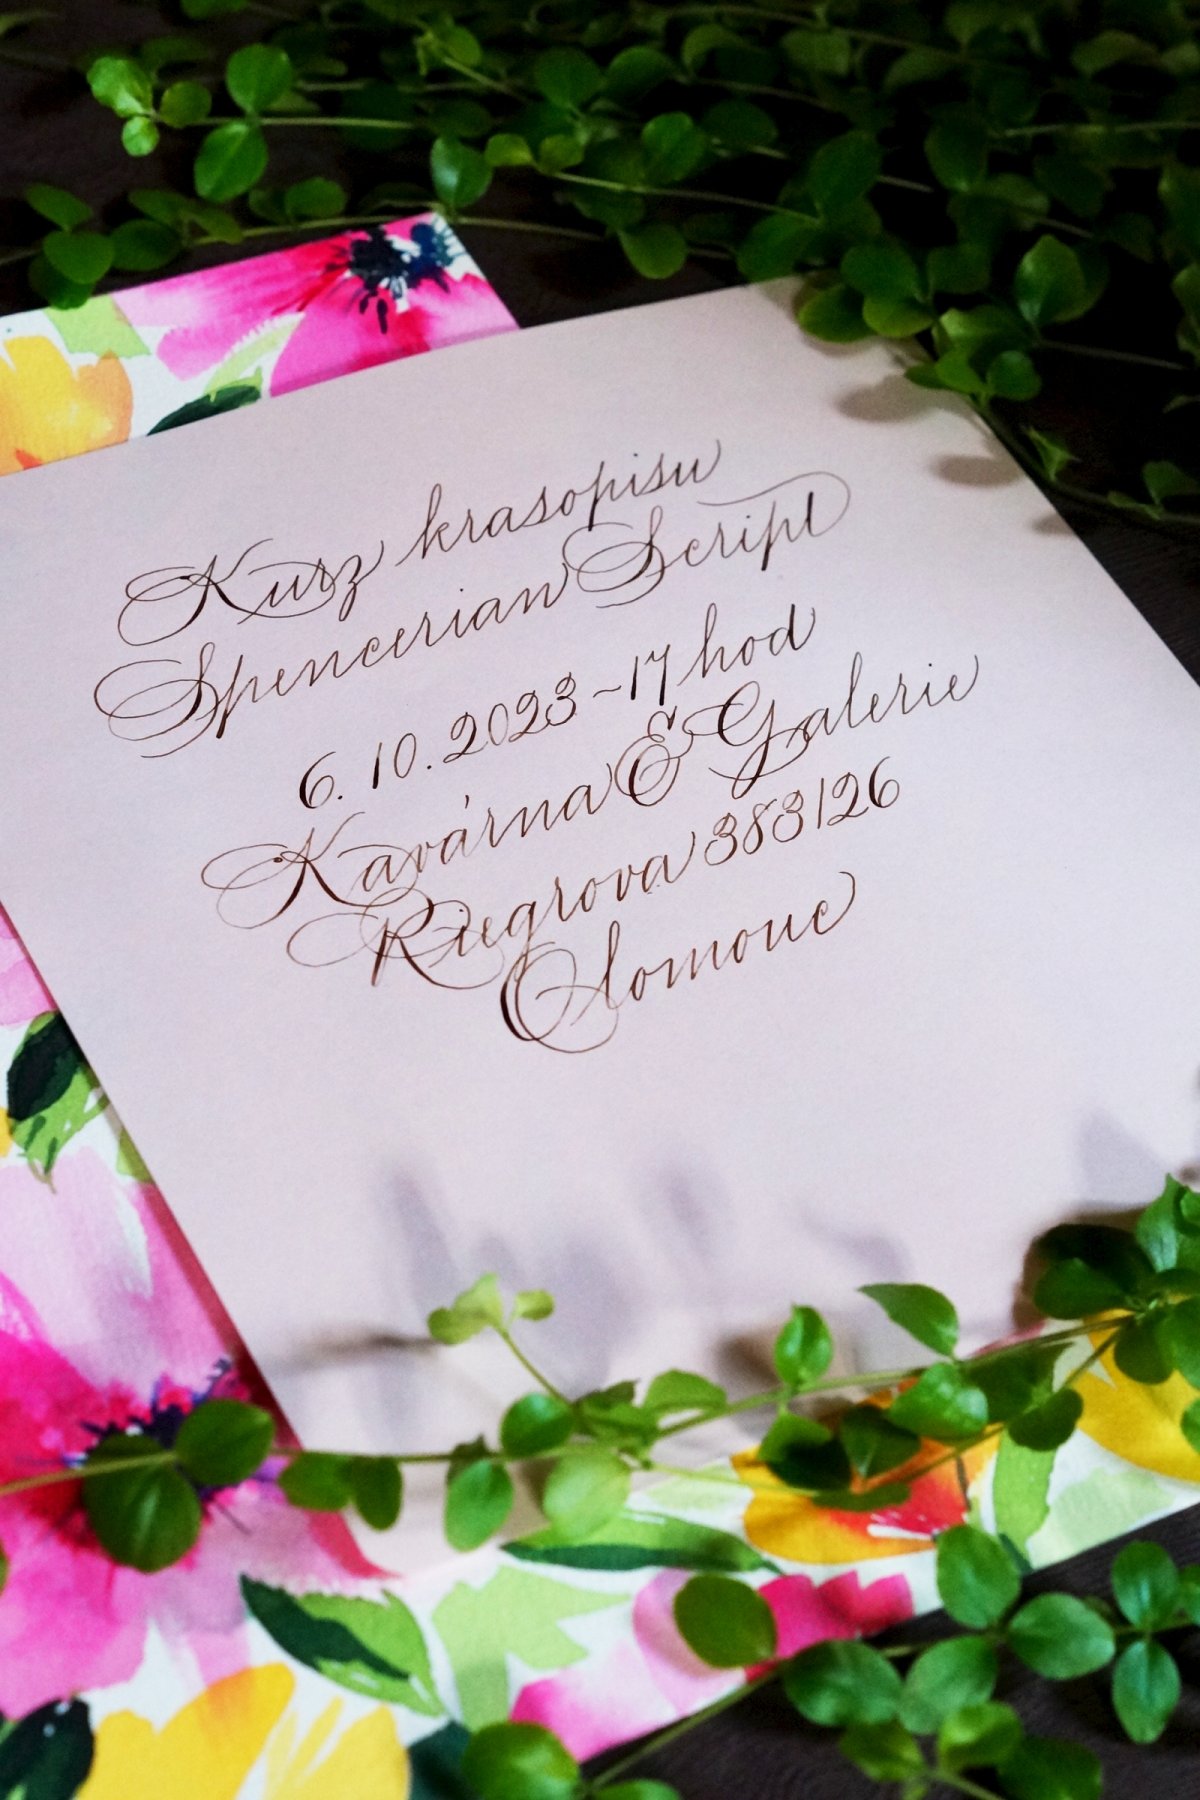 Kurz krasopisu
Spencerian Script
6. 10. 2023 ~ 17 hod
Kavárna & Galerie
Riegrova 383/26
Olomouc